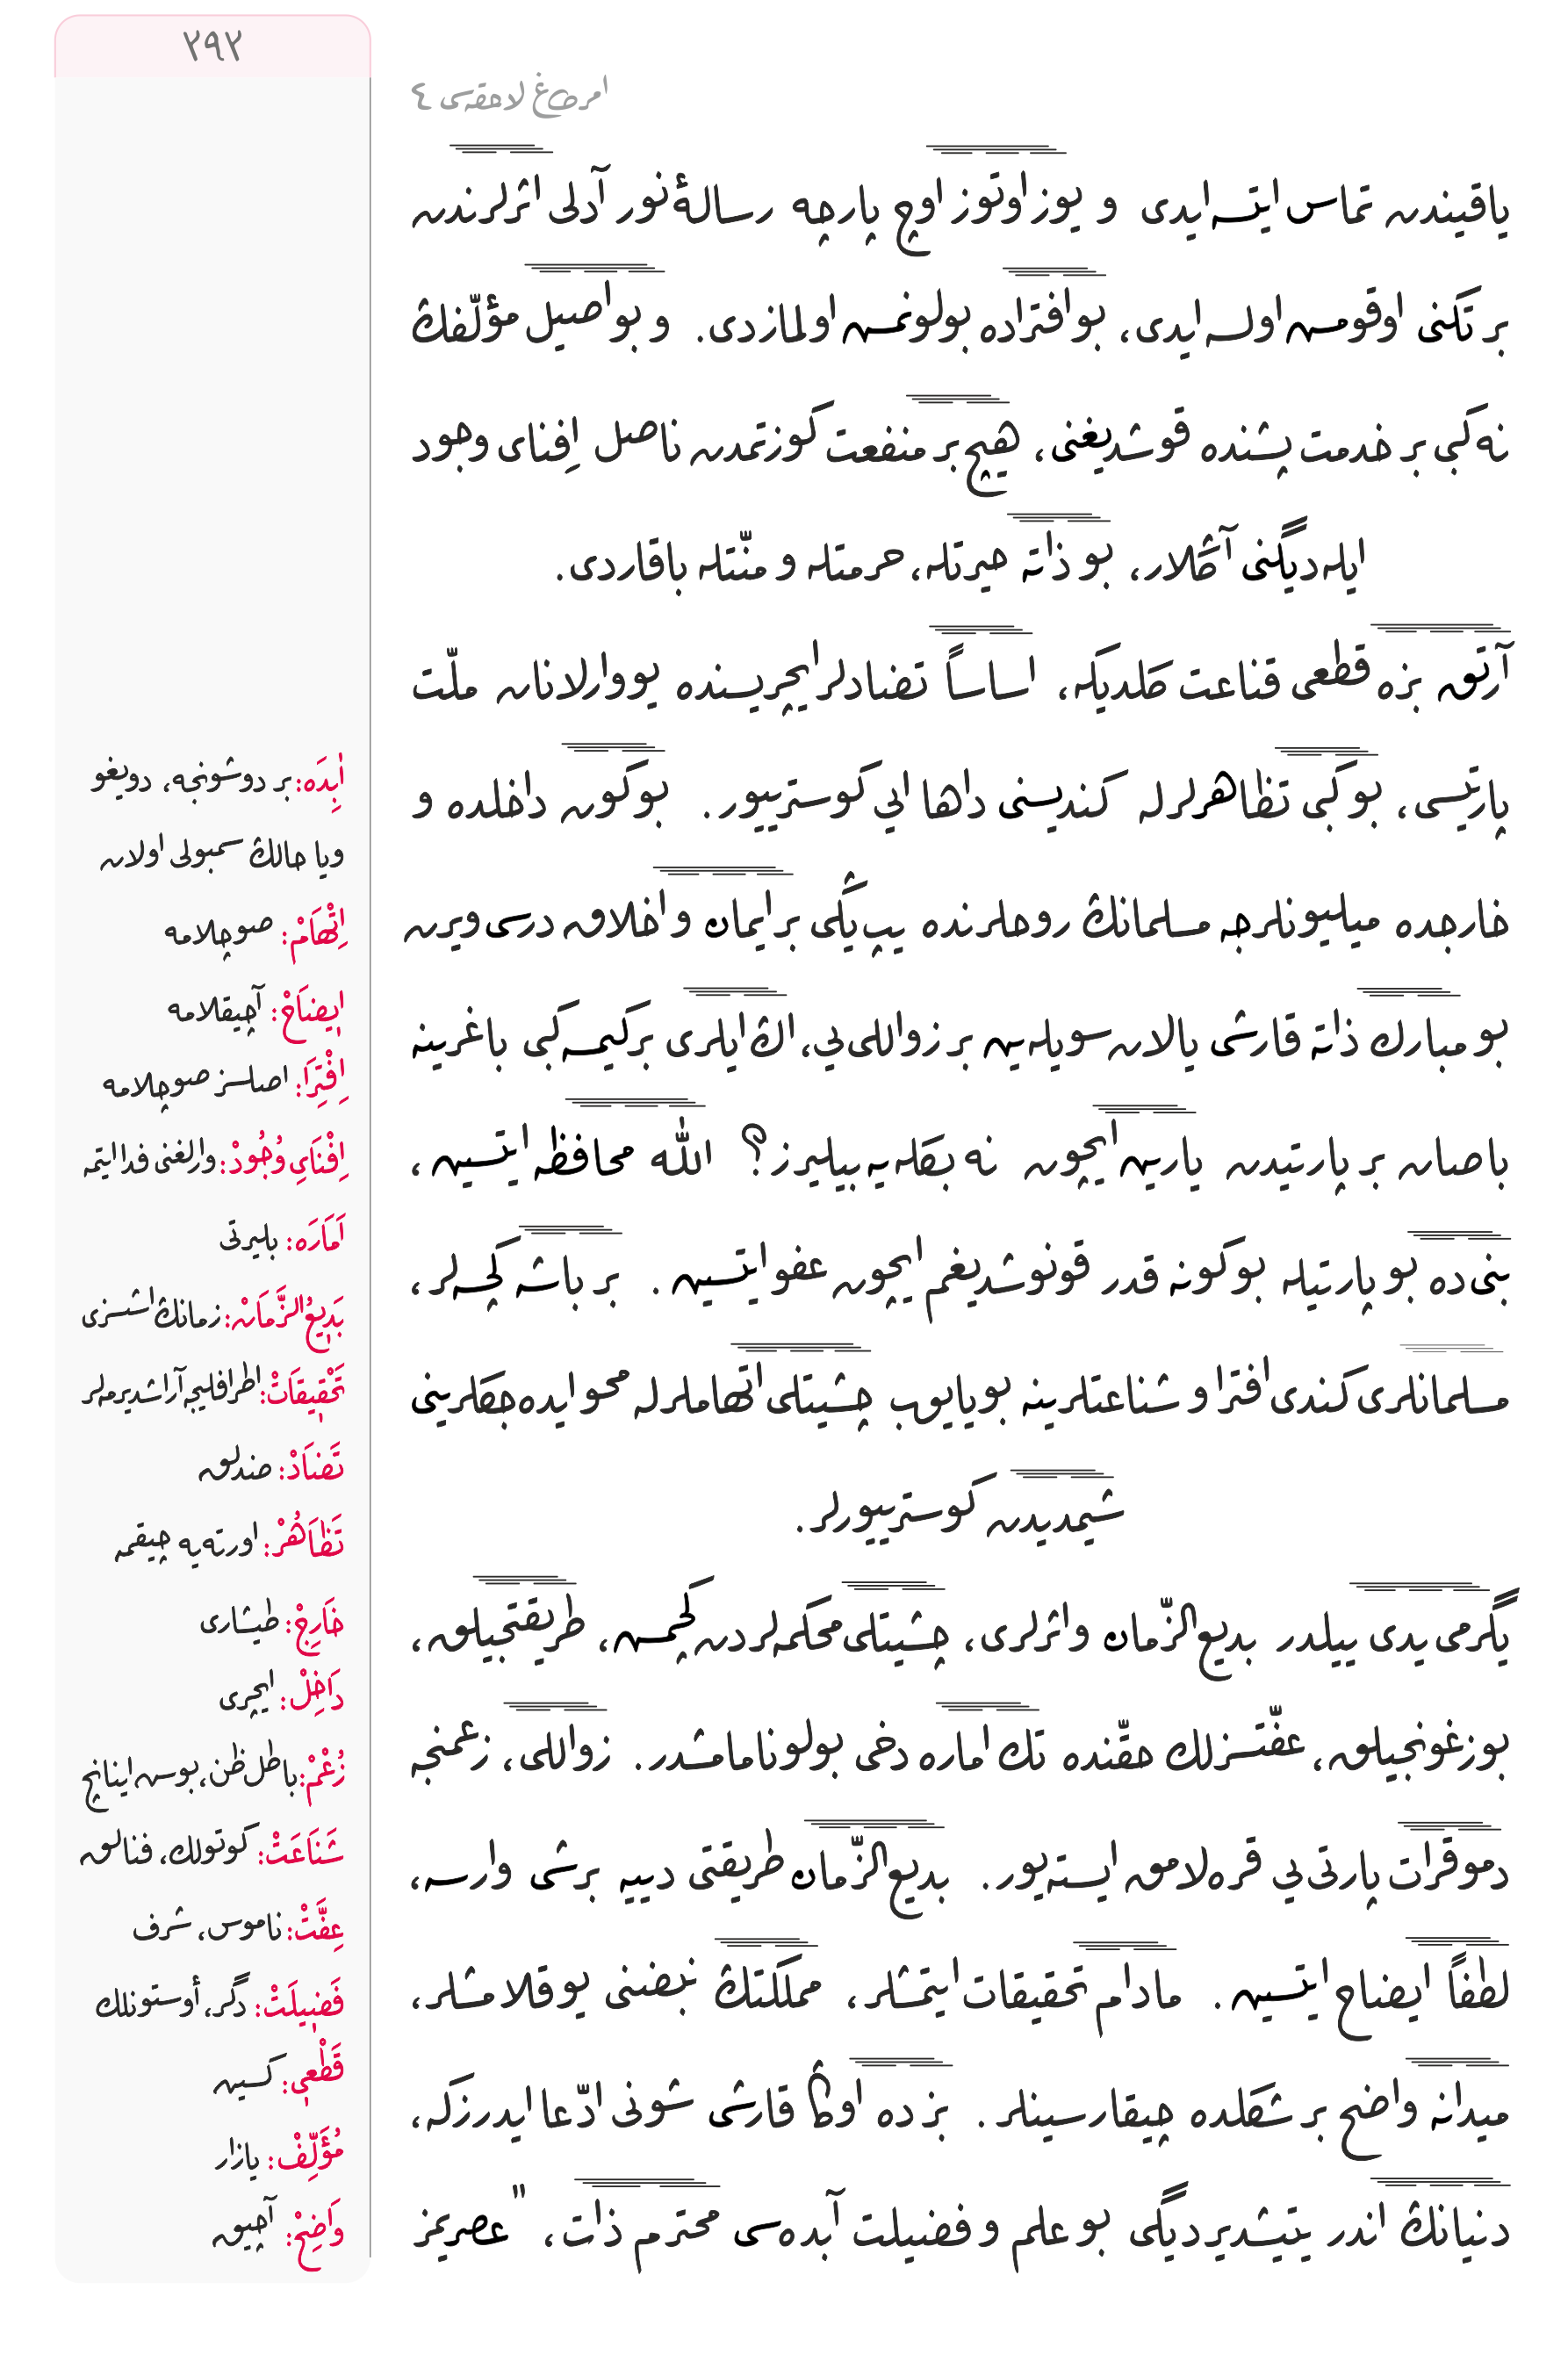 ٢٩٢
امرطاغ لاحقه‌سی ٤
ياقيندن تماس ايتسه‌ايدی و يوز اوتوز اوچ پارچه رسالهٔ نور آدلی اثرلرندن
بر تكنی اوقومش اولسه‌ايدی، بو افتراده بولونمش اولمازدی. و بو اصيل مؤلّفڭ
نه كبی بر خدمت پشنده قوشديغنی، هيچ بر منفعت كوزتمدن ناصل اِفنای وجود
ايله‌ديگنی آڭلار، بو ذاته حيرتله، حرمتله و منّتله باقاردی.
آرتق بزه قطعی قناعت كلديكه، اساساً تضادلر ايچريسنده يووارلانان ملّت
پارتيسی، بو كبی تظاهرلرله كنديسنی داها ایی كوسترييور. بو كون داخلده و
خارجده ميليونلرجه مسلمانڭ روحلرنده يپ‌يڭی بر ايمان و اخلاق درسی ويرن
بو مبارك ذاته قارشی يالان سويله‌ين بر زواللی‌يی، اڭ ايلری بر كيمسه كبی باغرينه
باصان بر پارتيدن يارين ايچون نه بكله‌يه‌بيليرز؟ اللّٰه محافظه ايتسين،
بنی ده بو پارتيله بو كونه قدر قونوشديغم ايچون عفو ايتسين. بر باشه كچسه‌لر،
مسلمانلری كندی افترا و شناعتلرينه بويايوب چشيتلی اتهاملرله محو ايده‌جكلرينی
شيمديدن كوسترييورلر.
يگرمی يدی ييلدر بديع الزّمان و اثرلری، چشيتلی محكمه‌لردن كچمش، طريقتجيلق،
بوزغونجيلق، عفّتسزلك حقّنده تك اماره دخی بولونامامشدر. زواللی، زعمنجه
دموقرات پارتی‌يی قره‌لامق ايسته‌يور. بديع الزّمان طريقتی دييه بر شی وارسه،
لطفاً ايضاح ايتسين. مادام تحقيقات ايتمشلر، مملكتڭ نبضنی يوقلامشلر،
ميدانه واضح بر شكلده چيقارسينلر. بز ده اوڭا قارشی شونی ادّعا ايدرزكه،
دنيانڭ اندر يتيشديرديگی بو علم و فضيلت آبده‌سی محترم ذات، "عصريمز
اٰبِدَه: بر دوشونجه، دويغو
ويا حالڭ سمبولی اولان
اِتِّهَامْ: صوچلامه
ايضَاحْ: آچيقلامه
اِفْتِرَا: اصلسز صوچلامه
اِفْنَايِ وُجُودْ: وارلغنی فدا ايتمه
اَمَارَه: بليرتی
بَدِيعُ الزَّمَانْ: زمانڭ اشسزی
تَحْقِيقَاتْ: اطرافليجه آراشديرمه‌لر
تَضَادْ: ضدلق
تَظَاهُرْ: اورته‌يه چيقمه
خَارِجْ: طيشاری
دَاخِلْ: ايچری
زُعْمْ: باطل ظن، بوش اينانج
شَنَاعَتْ: كوتولك، فنالق
عِفَّتْ: ناموس، شرف
فَضِيلَتْ: دگر، اُوستونلك
قَطْعِي: كسين
مُؤَلِّفْ: يازار
وَاضِحْ: آچيق